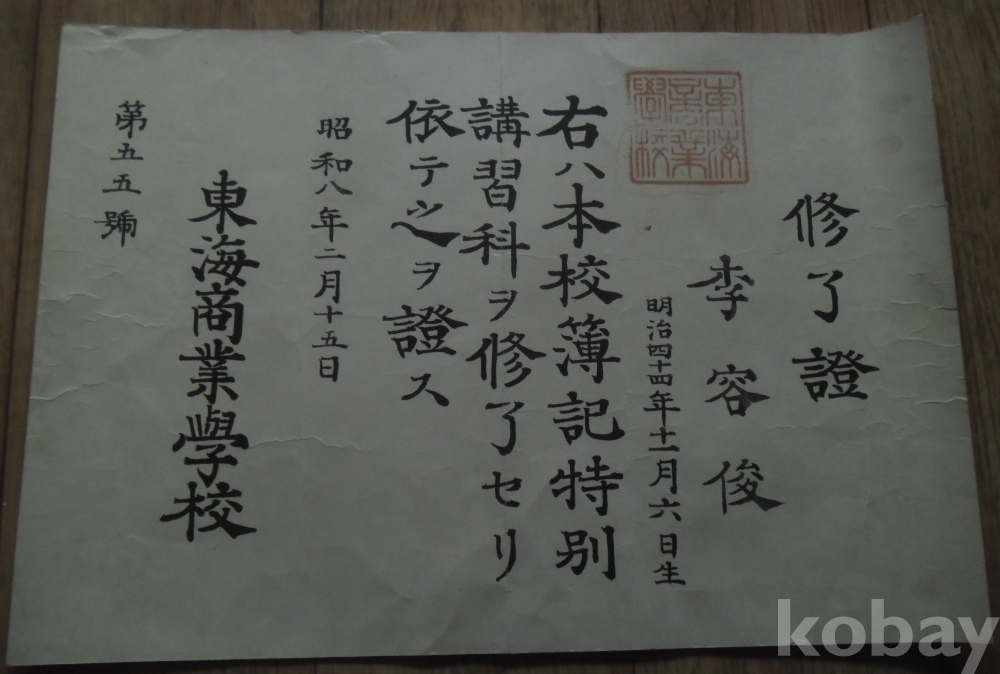 修了證
李容俊
明治四十四年十一月六日生
右ハ本校簿記特別
講習科ヲ修了セリ
依テ之ヲ證ス
昭和八年二月十五日
東海商業學校
第五五號
東海商業學校
kobay